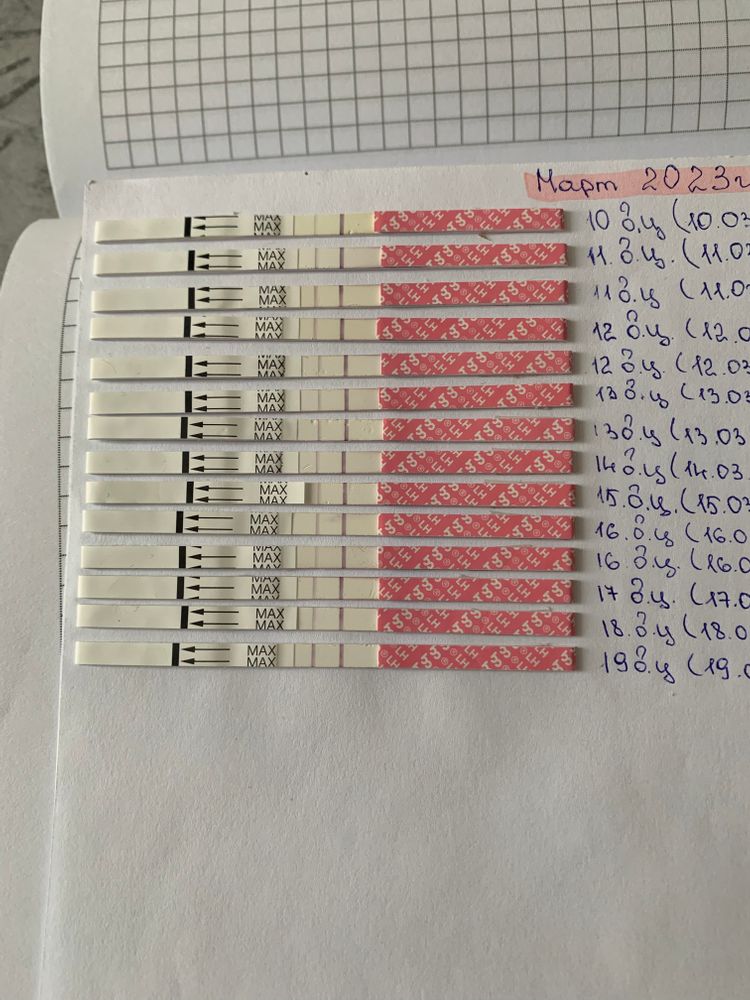 Март 2023г
MAX MAX MAX LH 10 д.ц (10.03
MAX MAX LH 11. д.ц. (11.03
MAX MAX LH 11 д.ц (11.0
MAX MAX LH 12 д.ц. (12.0
MAX MAX LH 12 д.ц. (12.03
MAX MAX LH 13 д.ц. (13.03
MAX MAX LH 13 д.ц (13.03
MAX MAX LH 14 д.ц (14.03
MAX MAX LH 15. д.ц. (15.03
MAX MAX LH 16. д.ц (16.0
MAX MAX LH 16 д.ц. (16.0
MAX MAX LH 17 д.ц. (17.0
MAX MAX LH 18. д.ц (18.0
MAX MAX LH 19 д.ц (19.0